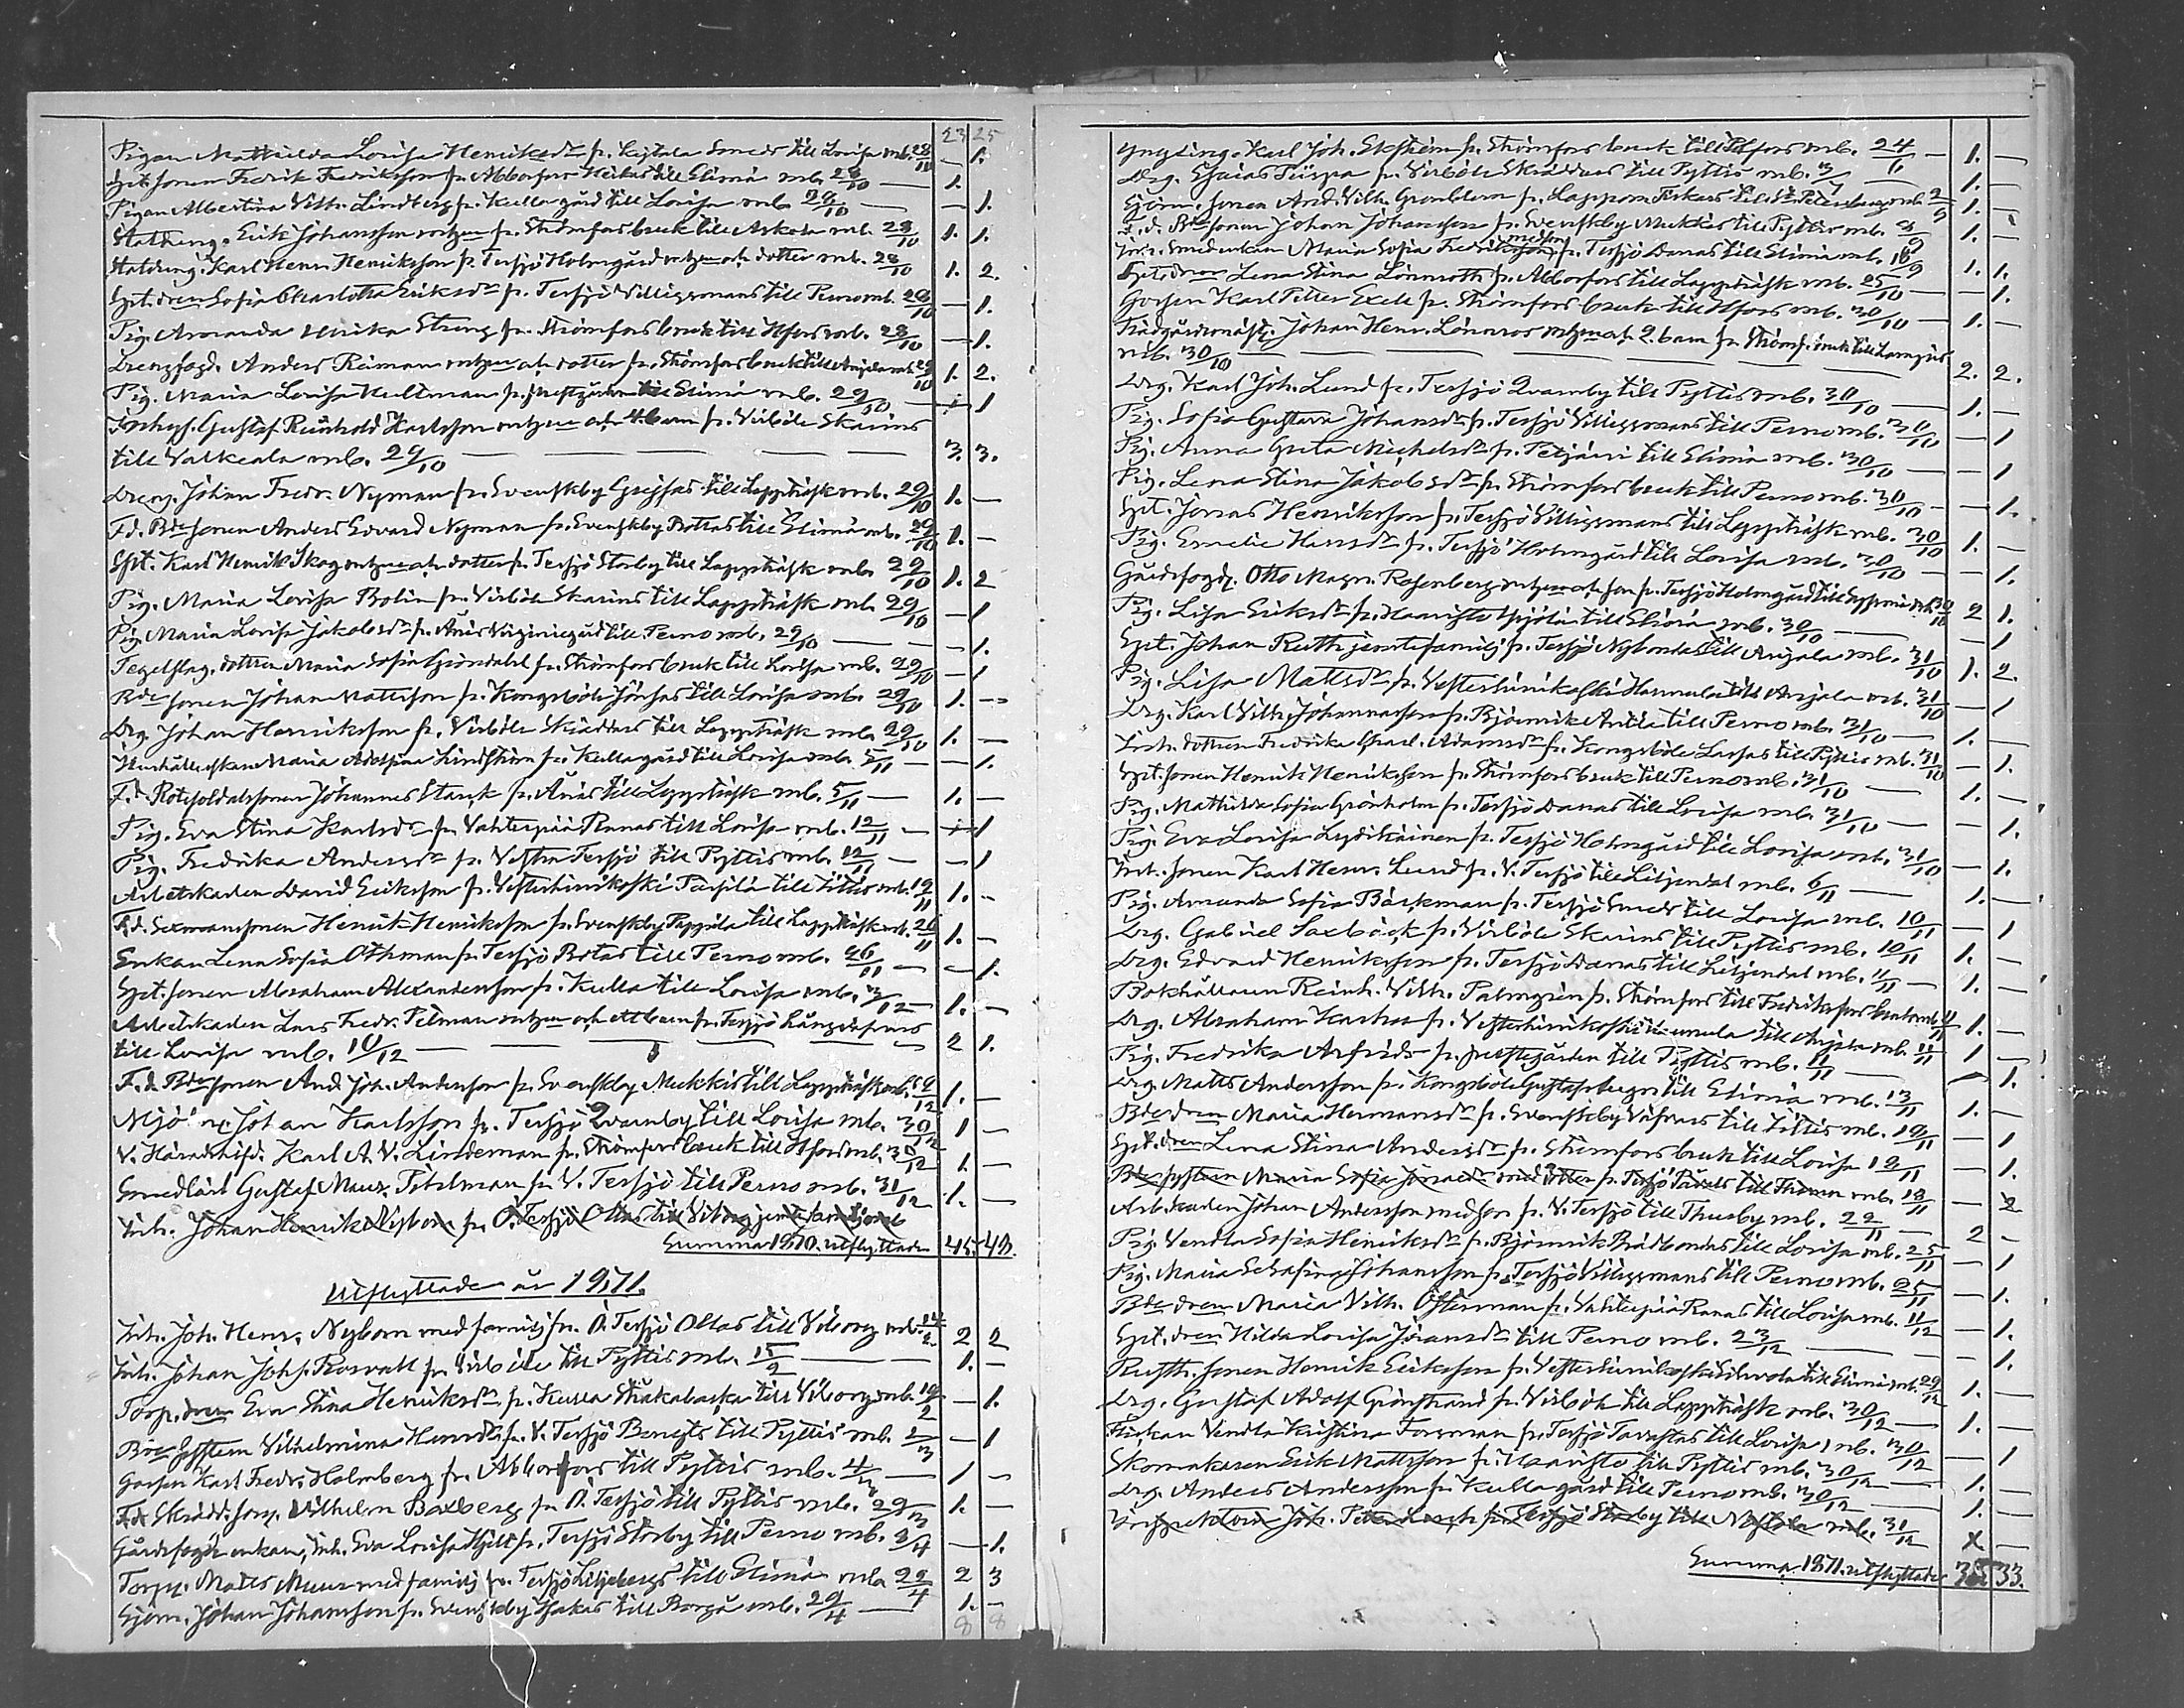 23 25
Pigan Mathilda Lovisa Henriksdr fr. Kejtala Smeds till Lovisa mb. 28/10 — 1.
Spt. sonen Fredrik Fredriksson fr. Abborfors Heikas till Elimä mb. 28/10 — 1.
Pigan Albertina Vilh. Lindberg fr. Kulla gård till Lovisa mb. 28/10 — — 1.
Statdreng. Erik Johansson m hu fr. Strömfors bruk till Askola mb. 28/10 1. 1.
Statdreng. Karl Henr. Henriksson fr. Tesjö Holmgård m hu och dotter mb. 28/10 1. 2.
Spt. dren Sofia Charlotta Eriksdr fr. Tesjö Villigsmans till Perno mb. 28/10 — 1.
Pig. Amanda Ulrika Streng fr. Strömfors bruk till Hfors mb. 28/10 — 1.
Drengfogd. Anders Reiman m hu och dotter fr. Strömfors bruk till Anjala mb. 29/10 1. 2.
Pig. Maria Lovisa Hultman fr. prestgården till Elimä mb. 29/10 — 1
Inhys. Gustaf Reinhold Karlsson m hu och 4 barn fr. Virböle Skarins
till Valkeala mb. 29/10 — — — — 3. 3.
Dreng. Johan Fredr. Nyman fr. Svenskby Grejsas till Lappträsk mb. 29/10 1. —
F.d. Bde sonen Anders Edvard Nyman fr. Svenskby Bottas till Elimä mb. 29/10 1. —
Spt. Karl Henrik Skog m hu och dotter fr. Tesjö Storby till Lappträsk mb. 29/10 1. 2
Pig. Maria Lovisa Bolin fr. Virböle Skarins till Lappträsk mb. 29/10 — 1
Pig. Maria Lovisa Jakobsdr fr. Ånäs Virginiegård till Perno mb. 29/10 — — 1.
Tegelslag. dottren Maria Sofia Gröndahl fr. Strömfors bruk till Lovisa mb. 29/10 — 1
Bde sonen Johan Mattsson fr. Kongsböle Jossas till Lovisa mb. 29/10 1. —
Drg. Johan Henriksson fr. Virböle Skräddars till Lappträsk mb. 29/10 1. —
Hushållerskan Maria Adolfina Lindström fr. Kulla gård till Lovisa mb. 5/11 — — 1.
F.d. Rotesoldatssonen Johannes Stark fr. Ånäs till Lappträsk mb. 5/11 — 1. —
Pig. Eva Stina Karlsdr fr. Vahterpää Rannas till Lovisa mb. 12/11 — 1
Pig. Fredrika Andersdr fr. Vestra Tesjö till Pyttis mb. 12/11 — — 1
Arbetskarlen David Eriksson fr. Vesterhinikoski Parsilä till Iittis mb. 19/11 1. —
F.d. Sexmanssonen Henrik Henriksson fr. Svenskby Pappila till Lappträsk mb. 26/11 1. —
Enkan Lena Sofia Öthman fr. Tesjö Botas till Perno mb. 26/11 — — 1.
Spt. sonen Abraham Alexandersson fr. Kulla till Lovisa mb. 3/12 — 1. —
Arbetskarlen Lars Fredr. Pelman m hu och ett barn fr. Tesjö Långstrands
till Lovisa mb. 10/12 — — — — 2 1.
F.d. Bde sonen And. Joh. Andersson fr. Svenskby Mukkis till Lappträsk mb. 29/12 1. —
Mjöln. Johan Karlsson fr. Tesjö Qvarnby till Lovisa mb. 30/12 1 —
V. Häradshöfd. Karl A. V. Lindeman fr. Strömfors bruk till Hfors mb. 30/12 1. —
Smedlärl. Gustaf Maur. Pitelman fr. V. Tesjö till Perno mb. 31/12 1. —
Inh. Johan Henrik Nybom fr. Ö. Tesjö Ollas till Viborg jemte familj mb
Summa 1870 utflyttade 45. 48.
Utflyttade år 1871.
Inh. Joh. Henr. Nybom med familj fr. Ö. Tesjö Ollas till Viborg mb. 2 2
Inh. Johan Johs. Rosvall fr. Virböle till Pyttis mb. 15/2 — — 1. —
Torp. dren Eva Stina Henriksdr fr. Kulla Skakabacka till Viborg mb. 19/2 — 1.
Bde systern Vilhelmina Henrdr fr. V. Tesjö Bengts till Pyttis mb. 2/3 — 1
Gossen Karl Fredr. Holmberg fr. Abborfors till Pyttis mb. 4/3 — 1 —
F.d. Skrädd. son. Vilhelm Boxberg fr. Ö. Tesjö till Pyttis mb. 29/3 1. —
Gårdsfogde enkan, inh. Eva Lovisa Hjelt fr. Tesjö Storby till Perno mb. 3/4 — 1.
Torpp. Matts Muur med familj fr. Tesjö Liljebergs till Elimä mb. 22/4 2 3
Sjöm. Johan Johansson fr. Svenskby Isakas till Borgå mb. 29/4 — 1. —
8 8
Yngling. Karl Joh. Ekström fr. Strömfors bruk till Hfors mb. 24/6 — 1. —
Drg. Esaias Piispa fr. Virböle Skräddars till Pyttis mb. 3/7 — 1. —
Sjöm. sonen And. Vilh. Grönblom fr. Lappom Fiskars till St Petersburg mb. 2/9 1. —
F.d. Bde sonen Johan Johansson fr. Svenskby Mukkis till Pyttis mb. 1. —
Inh. Smedenkan Maria Sofia Fredriksson med son fr. Tesjö Danas till Elimä mb. 16/9 1. 1.
Spt. dren Lena Stina Lönnroth fr. Abborfors till Lappträsk mb. 25/10 — — 1.
Gossen Karl Petter Exell fr. Strömfors bruk till Hfors mb. 30/10 — 1. —
Trädgårdsmäst. Johan Henr. Lönnroos m hu och 2 barn fr. Strömf. bruk till Lampis
mb. 30/10 — — — — 2. 2.
Drg. Karl Joh. Lund fr. Tesjö Qvarnby till Pyttis mb. 30/10 — 1. —
Pig. Sofia Gustava Johansdr fr. Tesjö Villigsmans till Perno mb. 30/10 — 1
Pig. Anna Greta Michelsdr fr. Petjärvi till Elimä mb. 30/10 — — 1
Pig. Lena Stina Jakobsdr fr. Strömfors bruk till Perno mb. 30/10 — — 1.
Spt. Jonas Henriksson fr. Tesjö Villigsmans till Lappträsk mb. 30/10 1. —
Pig. Emelie Hansdr fr. Tesjö Holmgård till Lovisa mb. 30/10 — — 1.
Gårdsfogd. Otto Magn. Rosenberg m hu och son fr. Tesjö Holmgård till mb. 30/10 2 1.
Pig. Lisa Eriksdr fr. Haavisto Ypjölä till Elimä mb. 30/10 — — 1
Spt. Johan Ruth jemte familj fr. Tesjö Nybondas till Anjala mb. 31/10 1. 2.
Pig. Lisa Mattsdr fr. Vesterhinikoski Hannula till Anjala mb. 31/10 — 1
Drg. Karl Vilh. Johannesson fr. Björnvik Antila till Perno mb. 31/10 — 1. —
Inh. dottren Fredrika Charl. Adamsdr fr. Kongsböle Lassas till Pyttis mb. 31/10 — 1.
Spt. sonen Henrik Henriksson fr. Strömfors bruk till Perno mb. 31/10 — 1. —
Pig. Mathilda Sofia Grönholm fr. Tesjö Danas till Lovisa mb. 31/10 — — 1.
Pig. Eva Lovisa Lydikäinen fr. Tesjö Holmgård till Lovisa mb. 31/10 — 1.
Inh. sonen Karl Henr. Lund fr. V. Tesjö till Liljendal mb. 6/11 — 1. —
Pig. Amanda Sofia Bäckman fr. Tesjö Smeds till Lovisa mb. 10/11 — 1
Drg. Gabriel Saxböck fr. Virböle Skarins till Pyttis mb. 10/11 1. —
Drg. Edvard Henriksson fr. Tesjö Danas till Liljendal mb. 11/11 — 1. —
Bokhållaren Reinh. Vilh. Palmgren fr. Strömfors till Fredriksfors bruk mb. 11/11 1. —
Drg. Abraham Karlss. fr. Vesterhinikoski Hannula till Anjala mb. 11/11 1 —
Pig. Fredrika Arfvidsdr fr. prestgården till Pyttis mb. 11/11 — — 1.
Drg. Matts Andersson fr. Kongsböle Gustafsbergs till Elimä mb. 13/11 1. —
Bde dren Maria Hermansdr fr. Svenskby Väfvars till Iittis mb. 19/11 — 1
Spt. dren Lena Stina Andersdr fr. Strömfors bruk till Lovisa 19/11 — 1.
Bde systern Maria Sofia Jönsdr med dotter fr. Tesjö Påvals till mb. 18/11 — 2
Arb. karlen Johan Andersson med son fr. V. Tesjö till Thusby mb. 22/11 — 2 —
Pig. Vendla Sofia Henriksdr fr. Björnvik Brådbondas till Lovisa mb. 25/11 — 1
Pig. Maria Serafina Johansson fr. Tesjö Villigsmans till Perno mb. 25/11 — 1.
Bde dren Maria Vilh. Österman fr. Vahterpää Ranas till Lovisa mb. 11/12 — 1.
Spt. dren Hilda Lovisa Johansdr till Perno mb. 23/12 — — 1.
Rusth. sonen Henrik Eriksson fr. Vesterhinikoski till Elimä mb. 29/12 1. —
Drg. Gustaf Adolf Grönstrand fr. Virböle till Lappträsk mb. 30/12 — 1. —
Flickan Vendla Kristina Forsman fr. Tesjö Tavastas till Lovisa mb. 30/12 — 1
Skomakaren Erik Mattsson fr. Haavisto till Pyttis mb. 30/12 — 1. —
Drg. Anders Andersson fr. Kulla gård till Perno mb. 30/12 — 1. —
Inspektorn Joh. Petter fr. Tesjö Storby till mb. 31/12 X —
Summa 1871 utflyttade 35 33.